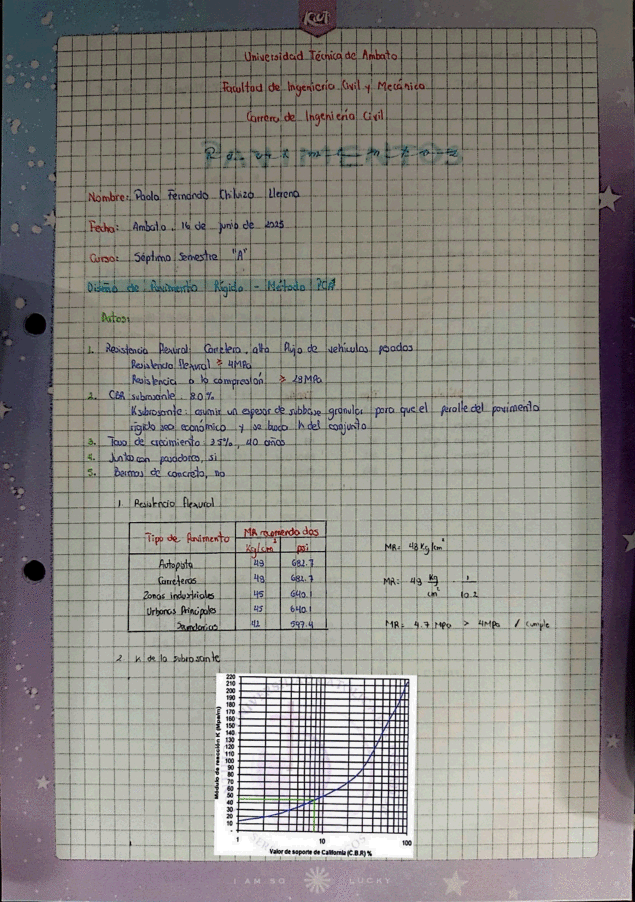 KIUT
Universidad Técnica de Ambato
Facultad de Ingenieria Civil y Mecánica
Carrera de Ingenieria Civil
PAVIMENTOS
Nombre: Paolo Fernando Chiluiza Llerena
Fecha: Ambato, 16 de junio de 2025
Curso: Séptimo Semestre "A"
Diseño de Pavimento Rígido - Método PCA
Datos:
1. Resistencia flexural: Carretera, alto flujo de vehículos pesados
Resistencia flexural ≥ 4MPa
Resistencia a la compresión > 28MPa
2. CBR subrasante 8.0 %
K subrasante: asumir un espesor de subbase granular para que el peralte del pavimento
rígido sea económico y se busca K del conjunto
3. Tasa de crecimiento 3.5%, 40 años
4. Juntas con pasadores, si
5. Bermas de concreto, no
1. Resistencia flexural
Tipo de Pavimento MR recomendados
Kg/cm² psi
Autopista 48 682.7
Carreteras 48 682.7
Zonas industriales 45 640.1
Urbanas Principales 45 640.1
Secundarias 42 597.4
MR= 48 Kg/cm²
MR= 48 Kg/cm² · 1/10.2
MR= 4.7 MPa > 4MPa / cumple
2. K de la subrasante
Módulo de reacción K (Mpa/m)
220
210
200
190
180
170
160
150
140
130
120
110
100
90
80
70
60
50
40
30
20
10
1 10 100
Valor de soporte de California (C.B.R) %
I AM SO LUCKY